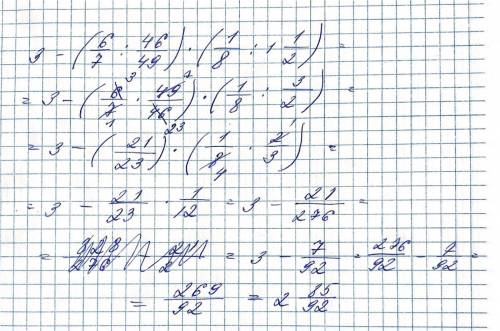 3 - (6/7 : 46/49) · (1/8 : 1 1/2) =
= 3 - (6/7 · 49/46) · (1/8 : 3/2) =
= 3 - (21/23) · (1/8 · 2/3) =
= 3 - 21/23 · 1/12 = 3 - 21/276 =
= 3 - 7/92 = 276/92 - 7/92 =
= 269/92 = 2 85/92